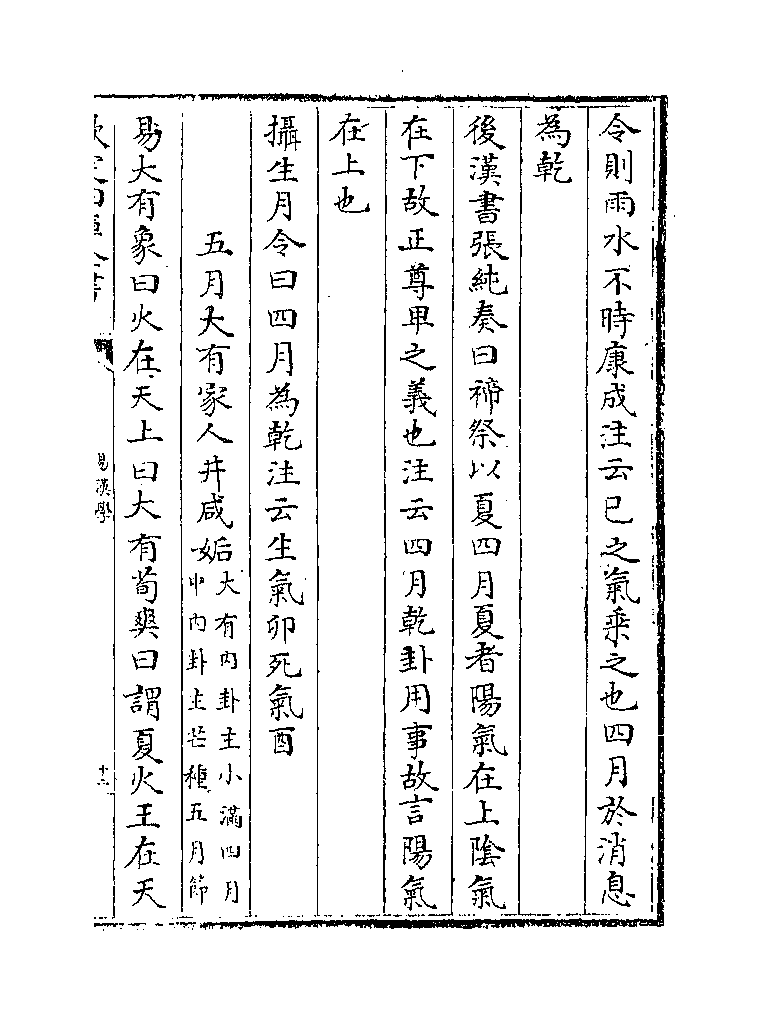 令則雨水不時康成注云巳之氣乘之也四月於消息
為乾
後漢書張純奏曰禘祭以夏四月夏者陽氣在上陰氣
在下故正尊卑之義也注云四月乾卦用事故言陽氣
在上也
攝生月令曰四月為乾注云生氣卯死氣酉
五月大有家人井咸姤大有内卦主小滿四月
中内卦主芒種五月節
易大有象曰火在天上曰大有荀爽曰謂夏火王在天
欽定四庫全書
易漢學
十二